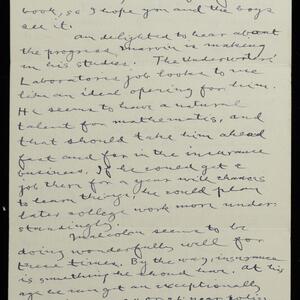 book, so I hope you and the boys
see it.
Am delighted to hear about
the progress Marvin is making
in his studies. The Underwriters'
Laboratories job looks to me
like an ideal opening for him.
He seems to have a natural
talent for mathematics, and
that should take him ahead
fast and far in the insurance
business. If he could get a
job there for a year with chances
to learn things, he could plan
later college work more under-
standingly.
seem to be
doing wonderfully well for
these times. By the way, insurance
is something he should have. At his
age he can get an exceptionally